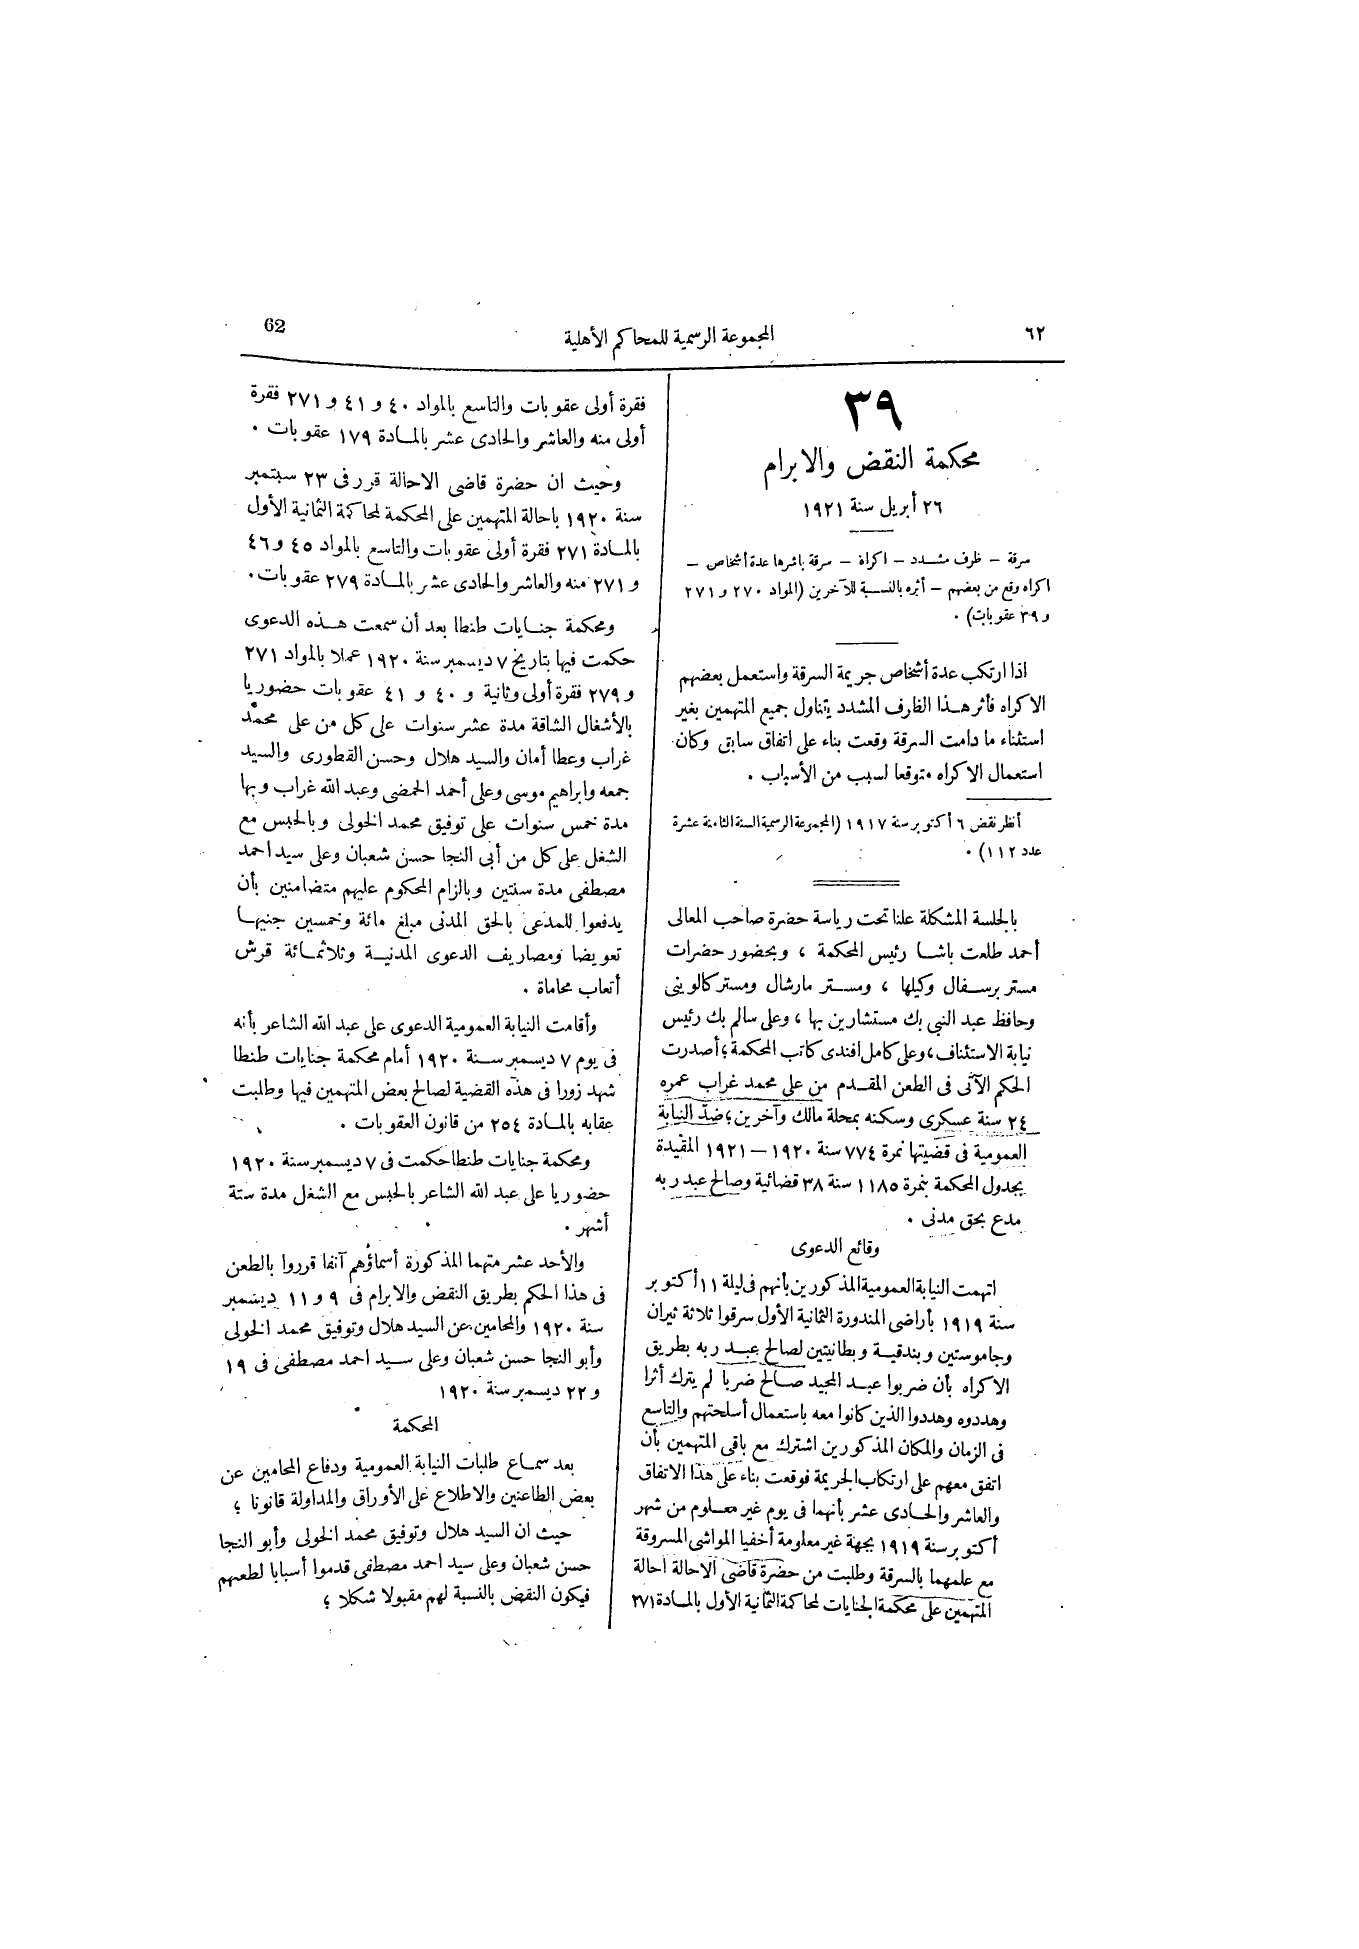 ٦٢
المجموعة الرسمية للمحاكم الأهلية
62
٣٩
محكمة النقض والابرام
٢٦ أبريل سنة ١٩٢١
سرقة – ظرف مشدد – اكراه – سرقة باشرها عدة أشخاص –
اكراه وقع من بعضهم – أثره بالنسبة للآخرين (المواد ٢٧٠ و ٢٧١
و ٣٩ عقوبات) .
اذا ارتكب عدة أشخاص جريمة السرقة واستعمل بعضهم
الاكراه فأثر هذا الظرف المشدد يتناول جميع المتهمين بغير
استثناء ما دامت السرقة وقعت بناء على اتفاق سابق وكان
استعمال الاكراه متوقعا لسبب من الأسباب .
أنظر نقض ٦ أكتوبر سنة ١٩١٧ (المجموعة الرسمية السنة الثامنة عشرة
عدد ١١٢) .
بالجلسة المشكلة علنا تحت رياسة حضرة صاحب المعالى
أحمد طلعت باشا رئيس المحكمة ، وبحضور حضرات
مستر برسفال وكيلها ، ومستر مارشال ومستر كالوينى
وحافظ عبد النبى بك مستشارين بها ، وعلى سالم بك رئيس
نيابة الاستئناف ، وعلى كامل افندى كاتب المحكمة ؛ أصدرت
الحكم الآتى فى الطعن المقدم من على محمد غراب عمره
٢٤ سنة عسكرى وسكنه بمحلة مالك وآخرين ؛ ضدّ النيابة
العمومية فى قضيتها نمرة ٧٧٤ سنة ١٩٢٠ – ١٩٢١ المقيدة
بجدول المحكمة بنمرة ١١٨٥ سنة ٣٨ قضائية وصالح عبد ربه
مدع بحق مدنى .
وقائع الدعوى
اتهمت النيابة العمومية المذكورين بأنهم فى ليلة ١١ أكتوبر
سنة ١٩١٩ بأراضى المندورة الثمانية الأول سرقوا ثلاثة ثيران
وجاموستين وبندقية وبطانيتين لصالح عبد ربه بطريق
الاكراه بأن ضربوا عبد المجيد صالح ضربا لم يترك أثرا
وهددوه وهددوا الذين كانوا معه باستعمال أسلحتهم والتاسع
فى الزمان والمكان المذكورين اشترك مع باقى المتهمين بأن
اتفق معهم على ارتكاب الجريمة فوقعت بناء على هذا الاتفاق
والعاشر والحادى عشر بأنهما فى يوم غير معلوم من شهر
أكتوبر سنة ١٩١٩ بجهة غير معلومة أخفيا المواشى المسروقة
مع علمهما بالسرقة وطلبت من حضرة قاضى الاحالة احالة
المتهمين على محكمة الجنايات لمحاكمة الثمانية الأول بالمادة ٢٧١
فقرة أولى عقوبات والتاسع بالمواد ٤٠ و ٤١ و ٢٧١ فقرة
أولى منه والعاشر والحادى عشر بالمادة ١٧٩ عقوبات .
وحيث ان حضرة قاضى الاحالة قرر فى ٢٣ سبتمبر
سنة ١٩٢٠ باحالة المتهمين على المحكمة لمحاكمة الثمانية الأول
بالمادة ٢٧١ فقرة أولى عقوبات والتاسع بالمواد ٤٥ و ٤٦
و ٢٧١ منه والعاشر والحادى عشر بالمادة ٢٧٩ عقوبات .
ومحكمة جنايات طنطا بعد أن سمعت هذه الدعوى
حكمت فيها بتاريخ ٧ ديسمبر سنة ١٩٢٠ عملا بالمواد ٢٧١
و ٢٧٩ فقرة أولى وثانية و ٤٠ و ٤١ عقوبات حضوريا
بالأشغال الشاقة مدة عشر سنوات على كل من على محمد
غراب وعطا أمان والسيد هلال وحسن القطورى والسيد
جمعه وابراهيم موسى وعلى أحمد الحمضى وعبد الله غراب وبها
مدة خمس سنوات على توفيق محمد الخولى وبالحبس مع
الشغل على كل من أبى النجا حسن شعبان وعلى سيد احمد
مصطفى مدة سنتين وبالزام المحكوم عليهم متضامنين بأن
يدفعوا للمدعى بالحق المدنى مبلغ مائة وخمسين جنيها
تعويضا ومصاريف الدعوى المدنية وثلاثمائة قرش
أتعاب محاماة .
وأقامت النيابة العمومية الدعوى على عبد الله الشاعر بأنه
فى يوم ٧ ديسمبر سنة ١٩٢٠ أمام محكمة جنايات طنطا
شهد زورا فى هذه القضية لصالح بعض المتهمين فيها وطلبت
عقابه بالمادة ٢٥٤ من قانون العقوبات .
ومحكمة جنايات طنطا حكمت فى ٧ ديسمبر سنة ١٩٢٠
حضوريا على عبد الله الشاعر بالحبس مع الشغل مدة ستة
أشهر .
والأحد عشر متهما المذكورة أسماؤهم آنفا قرروا بالطعن
فى هذا الحكم بطريق النقض والابرام فى ٩ و ١١ ديسمبر
سنة ١٩٢٠ والمحامين عن السيد هلال وتوفيق محمد الخولى
وأبو النجا حسن شعبان وعلى سيد احمد مصطفى فى ١٩
و ٢٢ ديسمبر سنة ١٩٢٠
المحكمة
بعد سماع طلبات النيابة العمومية ودفاع المحامين عن
بعض الطاعنين والاطلاع على الأوراق والمداولة قانونا ؛
حيث ان السيد هلال وتوفيق محمد الخولى وأبو النجا
حسن شعبان وعلى سيد احمد مصطفى قدموا أسبابا لطعنهم
فيكون النقض بالنسبة لهم مقبولا شكلا ؛